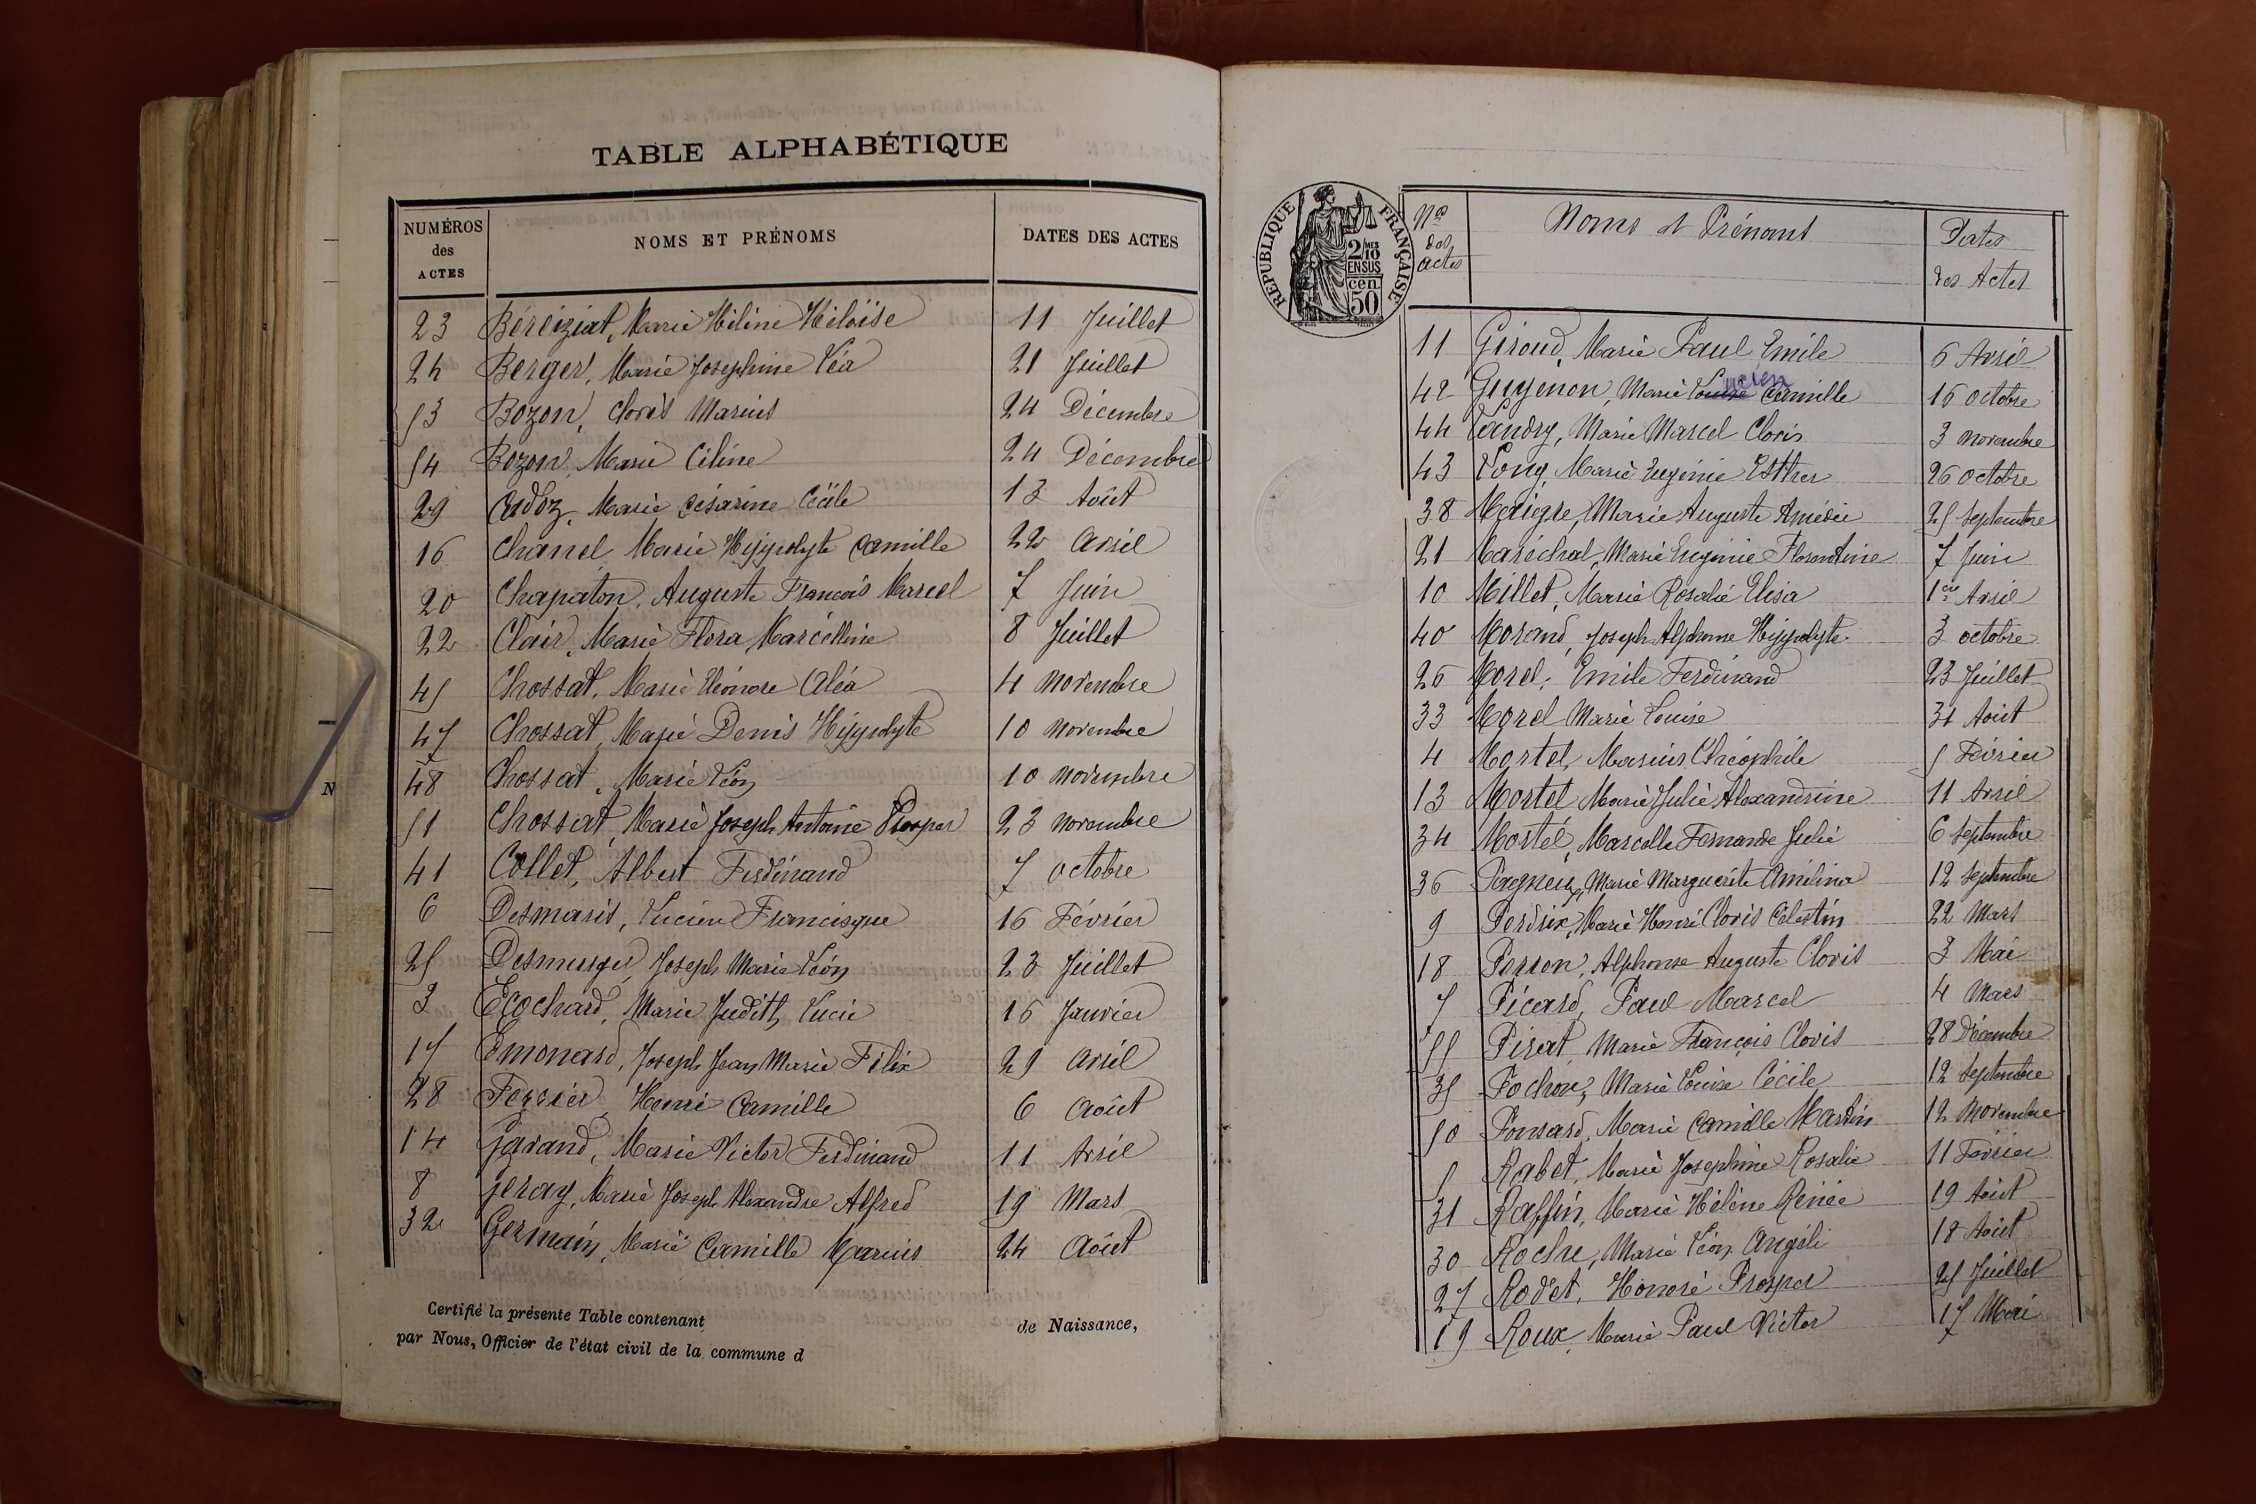 TABLE ALPHABÉTIQUE
NUMÉROS des ACTES NOMS ET PRÉNOMS DATES DES ACTES
23 Béréziat, Marie Hélène Héloïse 11 Juillet
24 Berger, Marie Josephine Léa 21 Juillet
53 Bozon, Clovis Marius 24 Décembre
54 Bozon, Marie Céline 24 Décembre
29 Cadoz, Marie Césarine Cécile 13 Août
16 Chanel Marie Hyppolyte Camille 22 Avril
20 Chapaton, Auguste François Marcel 7 Juin
22 Clair, Marie Flora Marcelline 8 Juillet
45 Chossat, Marie Eléonore Aléa 4 Novembre
47 Chossat, Marie Denis Hyppolyte 10 Novembre
48 Chossat, Marie Léon 10 Novembre
51 Chossat, Marie Joseph Antoine Prosper 23 Novembre
41 Collet, Albert Ferdinand 7 Octobre
6 Desmaris, Lucien Francisque 16 Février
25 Joseph Marie Léon 23 Juillet
3 Ecochard, Marie Judith Lucie 16 Janvier
17 Emonard, Joseph Jean Marie Félix 29 Avril
28 Ferrier, Henri Camille 6 Août
14 Gavand, Marie Victor Ferdinand 11 Avril
8 Geray, Marie Joseph Alexandre Alfred 19 Mars
32 Germain, Marie Camille Marius 24 Août
Certifié la présente Table contenant de Naissance,
par Nous, Officier de l'état civil de la commune d
RÉPUBLIQUE FRANÇAISE
2/10 MES
EN SUS
50 cen
Nos des Actes Noms et Prénoms Dates des Actes
11 Giroud, Marie Paul Emile 6 Avril
ucien
42 Guyenon, Marie Louise Camille 16 Octobre
44 Landry, Marie Marcel Clovis 3 Novembre
43 Long, Marie Eugénie Esther 26 Octobre
38 Maigre, Marie Auguste Amédée 25 Septembre
21 Maréchal, Marie Eugénie Florentine 7 Juin
10 Millet, Marie Rosalie Elisa 1er Avril
40 Morand, Joseph Alphonse Hyppolyte 3 Octobre
26 Morel, Emile Ferdinand 23 Juillet
33 Morel Marie Louise 31 Août
4 Mortel, Marius Théophile 5 Février
13 Mortel, Marie Julie Alexandrine 11 Avril
34 Mortel, Marcelle Fernande Julie 6 Septembre
36 Pagneux, Marie Marguerite Amélina 12 Septembre
9 Perdrix, Marie Henri Clovis Célestin 22 Mars
18 Perron, Alphonse Auguste Clovis 3 Mai
7 Picard, Paul Marcel 4 Mars
55 Pirat, Marie François Clovis 28 Décembre
35 Pochon, Marie Louise Cécile 12 Septembre
50 Ponsard, Marie Camille Martin 12 Novembre
5 Rabet, Marie Josephine Rosalie 11 Février
31 Raffin, Marie Hélène Renée 19 Août
30 Roche, Marie Léon Angéli 18 Août
27 Rodet, Honoré Prosper 25 Juillet
19 Roux, Marie Paul Victor 17 Mai